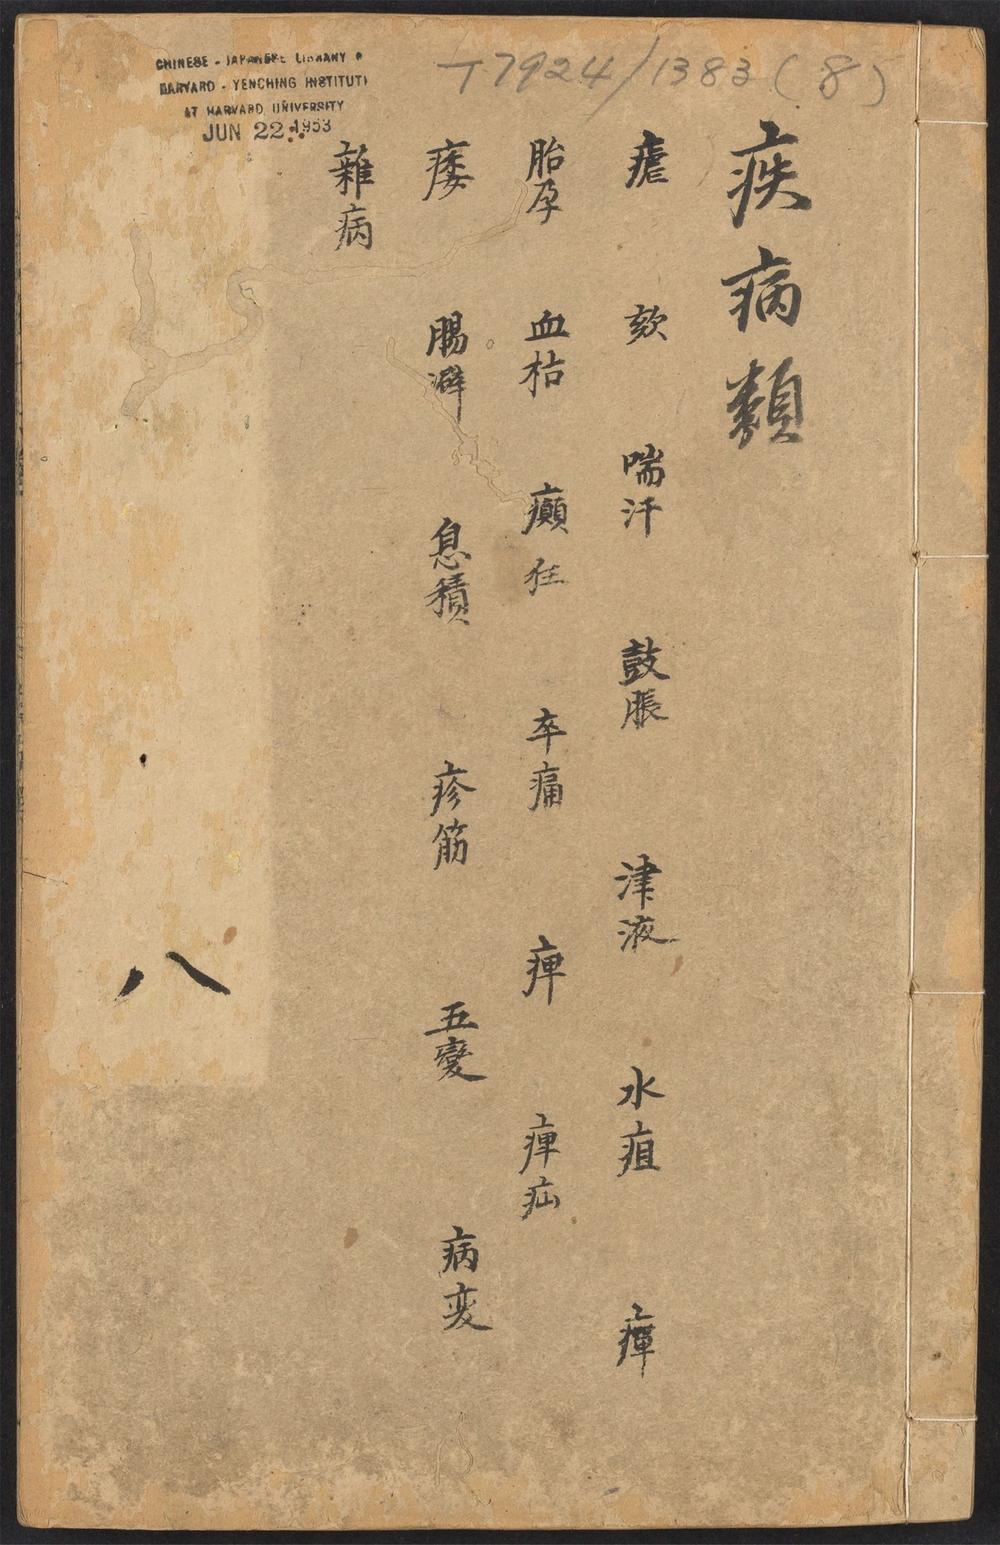 CHINESE - JAPANESE LIBRARY
HARVARD - YENCHING INSTITUTE
AT HARVARD UNIVERSITY
JUN 22 1953
T7924/1383(8)
疾病類
瘧 欬 喘汗 鼓脹 津液 水疽 癉
胎孕 血枯 癲狂 卒痛 痺 痺疝
痿 腸澼 息積 疹筋 五變 病変
雜病
八